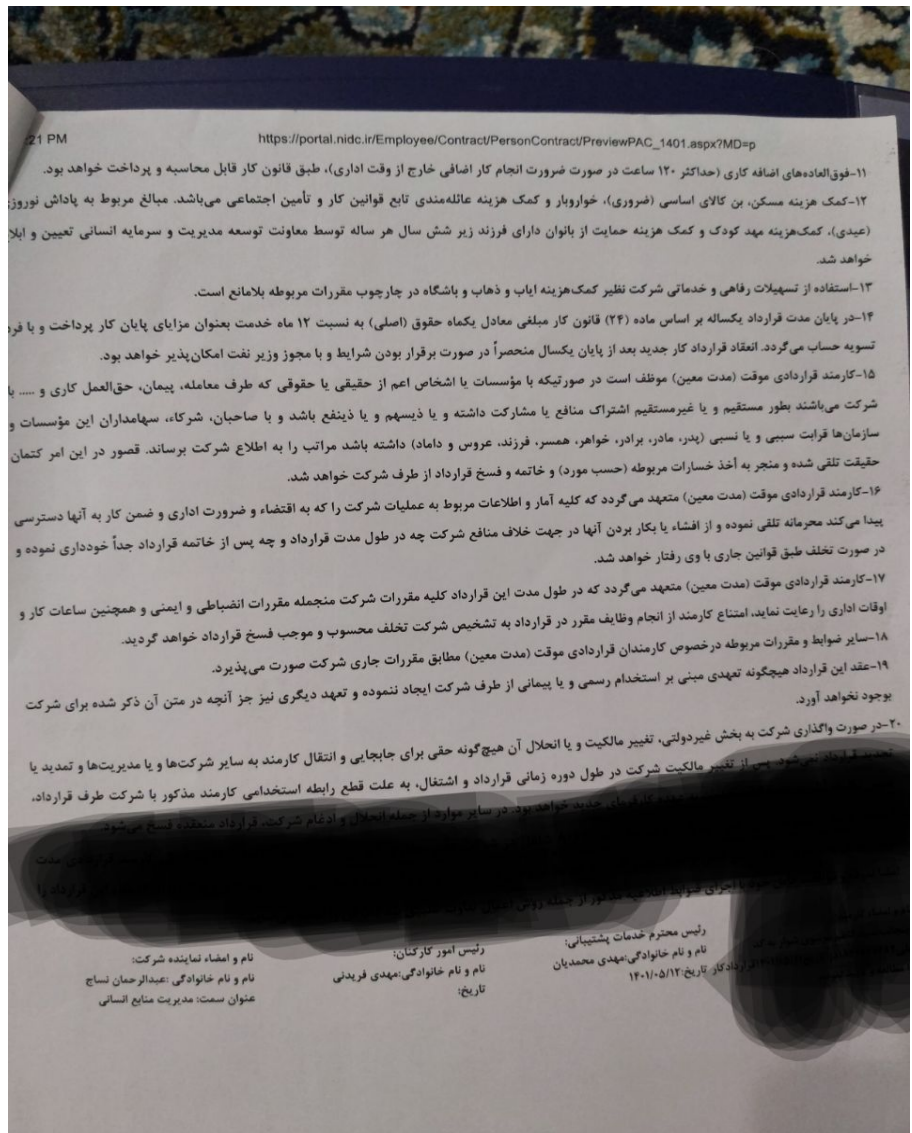 21 PM
https://portal.nidc.ir/Employee/Contract/PersonContract/PreviewPAC_1401.aspx?MD=p
۱۱-فوق‌العاده‌های اضافه کاری (حداکثر ۱۲۰ ساعت در صورت ضرورت انجام کار اضافی خارج از وقت اداری)، طبق قانون کار قابل محاسبه و پرداخت خواهد بود.
۱۲-کمک هزینه مسکن، بن کالای اساسی (ضروری)، خواروبار و کمک هزینه عائله‌مندی تابع قوانین کار و تأمین اجتماعی می‌باشد. مبالغ مربوط به پاداش نوروزی
(عیدی)، کمک‌هزینه مهد کودک و کمک هزینه حمایت از بانوان دارای فرزند زیر شش سال هر ساله توسط معاونت توسعه مدیریت و سرمایه انسانی تعیین و ابلا
خواهد شد.
۱۳-استفاده از تسهیلات رفاهی و خدماتی شرکت نظیر کمک‌هزینه ایاب و ذهاب و باشگاه در چارچوب مقررات مربوطه بلامانع است.
۱۴-در پایان مدت قرارداد یکساله بر اساس ماده (۲۴) قانون کار مبلغی معادل یکماه حقوق (اصلی) به نسبت ۱۲ ماه خدمت بعنوان مزایای پایان کار پرداخت و با فرد
تسویه حساب می‌گردد. انعقاد قرارداد کار جدید بعد از پایان یکسال منحصراً در صورت برقرار بودن شرایط و با مجوز وزیر نفت امکان‌پذیر خواهد بود.
۱۵-کارمند قراردادی موقت (مدت معین) موظف است در صورتیکه با مؤسسات یا اشخاص اعم از حقیقی یا حقوقی که طرف معامله، پیمان، حق‌العمل کاری و ..... با
شرکت می‌باشند بطور مستقیم و یا غیرمستقیم اشتراک منافع یا مشارکت داشته و یا ذیسهم و یا ذینفع باشد و با صاحبان، شرکاء، سهامداران این مؤسسات و
سازمان‌ها قرابت سببی و یا نسبی (پدر، مادر، برادر، خواهر، همسر، فرزند، عروس و داماد) داشته باشد مراتب را به اطلاع شرکت برساند. قصور در این امر کتمان
حقیقت تلقی شده و منجر به أخذ خسارات مربوطه (حسب مورد) و خاتمه و فسخ قرارداد از طرف شرکت خواهد شد.
۱۶-کارمند قراردادی موقت (مدت معین) متعهد می‌گردد که کلیه آمار و اطلاعات مربوط به عملیات شرکت را که به اقتضاء و ضرورت اداری و ضمن کار به آنها دسترسی
پیدا می‌کند محرمانه تلقی نموده و از افشاء یا بکار بردن آنها در جهت خلاف منافع شرکت چه در طول مدت قرارداد و چه پس از خاتمه قرارداد جداً خودداری نموده و
در صورت تخلف طبق قوانین جاری با وی رفتار خواهد شد.
۱۷-کارمند قراردادی موقت (مدت معین) متعهد می‌گردد که در طول مدت این قرارداد کلیه مقررات شرکت منجمله مقررات انضباطی و ایمنی و همچنین ساعات کار و
اوقات اداری را رعایت نماید. امتناع کارمند از انجام وظایف مقرر در قرارداد به تشخیص شرکت تخلف محسوب و موجب فسخ قرارداد خواهد گردید.
۱۸-سایر ضوابط و مقررات مربوطه درخصوص کارمندان قراردادی موقت (مدت معین) مطابق مقررات جاری شرکت صورت می‌پذیرد.
۱۹-عقد این قرارداد هیچگونه تعهدی مبنی بر استخدام رسمی و یا پیمانی از طرف شرکت ایجاد ننموده و تعهد دیگری نیز جز آنچه در متن آن ذکر شده برای شرکت
بوجود نخواهد آورد.
۲۰-در صورت واگذاری شرکت به بخش غیردولتی، تغییر مالکیت و یا انحلال آن هیچ‌گونه حقی برای جابجایی و انتقال کارمند به سایر شرکت‌ها و یا مدیریت‌ها و تمدید یا
تجدید قرارداد نمی‌شود. پس از تغییر مالکیت شرکت در طول دوره زمانی قرارداد و اشتغال، به علت قطع رابطه استخدامی کارمند مذکور با شرکت طرف قرارداد،
کارفرمای جدید خواهد بود. در سایر موارد از جمله انحلال و ادغام شرکت، قرارداد منعقده فسخ می‌شود.
مدت
قرارداد را
رئیس محترم خدمات پشتیبانی:
نام و نام خانوادگی:مهدی محمدیان
تاریخ:۱۴۰۱/۰۵/۱۲
رئیس امور کارکنان:
نام و نام خانوادگی:مهدی فریدنی
تاریخ:
نام و امضاء نماینده شرکت:
نام و نام خانوادگی :عبدالرحمان نساج
عنوان سمت: مدیریت منابع انسانی